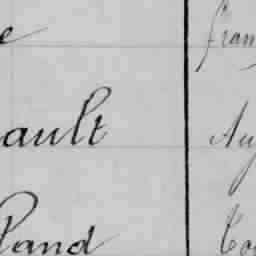 e fran
ault Au
land Co